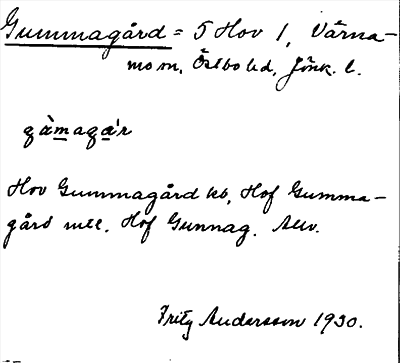 Gummagård = 5 Hov 1, Värna-
mo sn, Östbo hd, Jönk. l.
gàmagár
Hov Gummagård kb, Hof Gumma-
gård mtl. Hof Gunnag. Auv.
Fritz Andersson 1930.